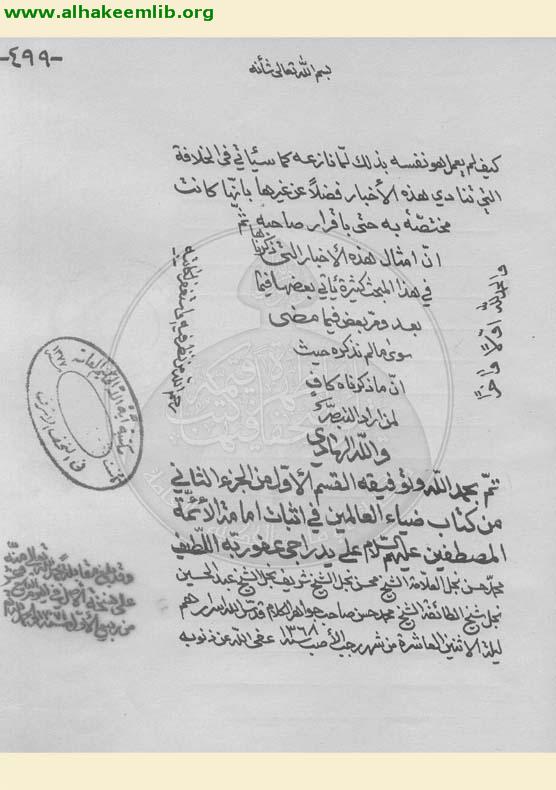 www.alhakeemlib.org
-٤٩٩-
بسم الله تعالى شأنه
كيف لم يعمل هو نفسه بذلك لمّا نازعه كما سيأتي في الخلافة
التي تنادي هذه الأخبار فضلاً عن غيرها بانّها كانت
مختصّة به حتى باقرار صاحبه ثمّ
انّ امثال هذه الأخبار التي ذكرناها
في هذا المبحث كثيرة يأتي بعضها فيما
بعد ومرّ بعض فيما مضى
سوى مالم نذكره حيث
انّ ما ذكرناه كافٍ
لمن اراد التبصّر
والله الهادي
والحمد لله اوّلاً وآخراً
رحم الله من نظر فيه واستغفر لكاتبه
تمّ بحمد الله وتوفيقه القسم الأوّل من الجزء الثاني
من كتاب ضياء العالمين في اثبات امامة الأئمّة
المصطفين عليهم السلام على يد راجي عفو ربّه اللّطيف
محمّد حسن نجل العلّامة الشيخ محسن نجل الشيخ شريف نجل الشيخ عبد الحسين
نجل شيخ الطائفة الشيخ محمد حسن صاحب جواهر الكلام قدّس الله اسرارهم
ليلة الاثنين العاشرة من شهر رجب الأصب سنة ١٣٦٨ عفى الله عن ذنوبه
مكتبة آية الله الحكيم العامة
في النجف الاشرف